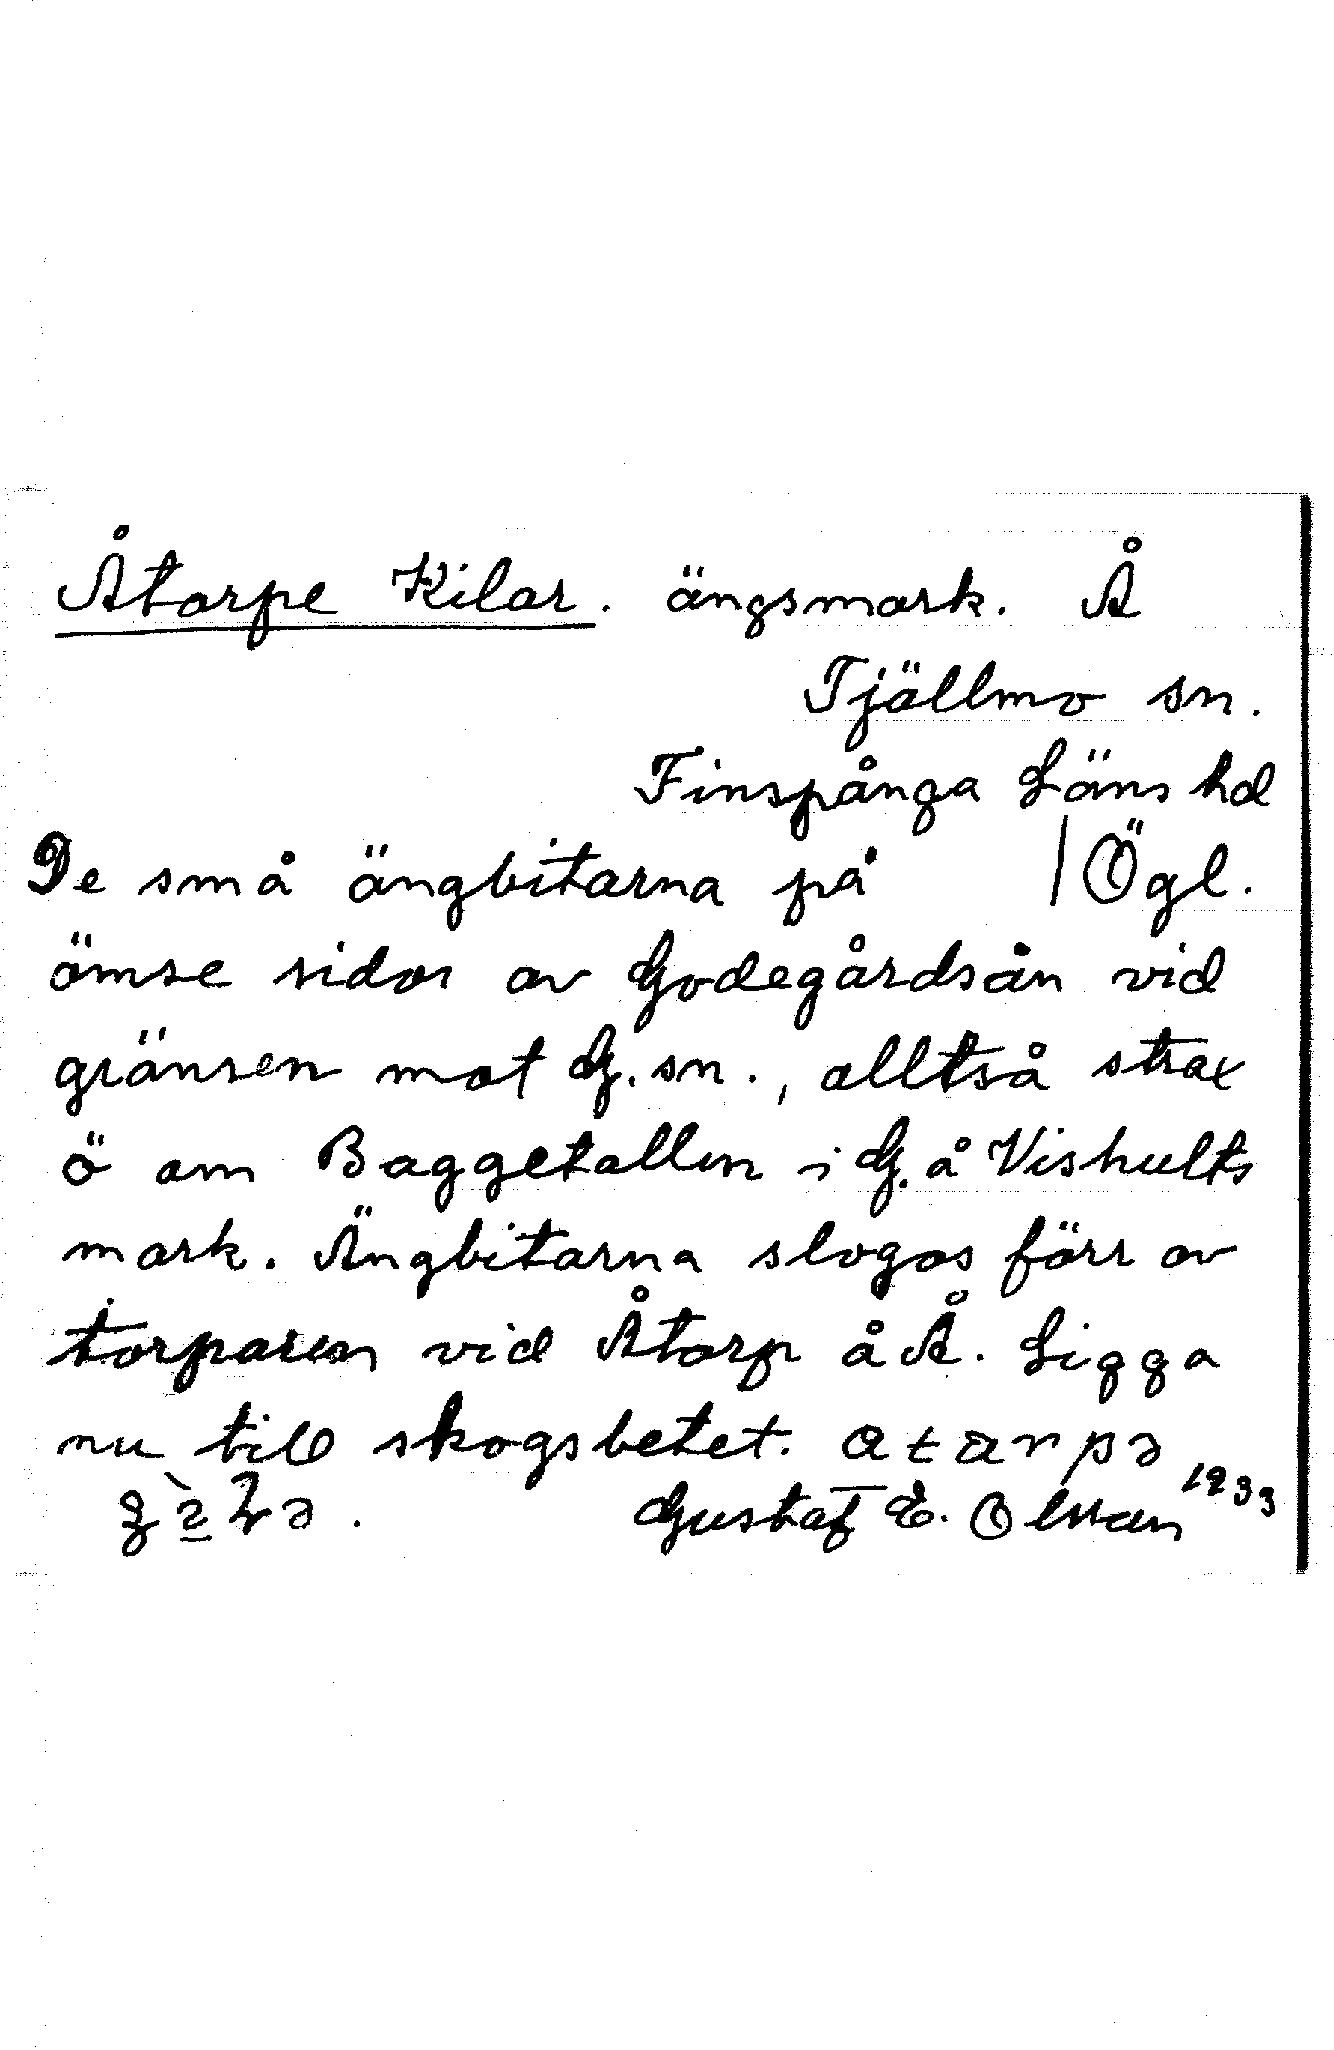 Åtorpe Kilar. ängsmark. Å
Tjällmo sn.
Finspånga Läns hd
De små ängbitarna på | Ögl.
ömse sidor av Godegårdsån vid
gränsen mot G. sn., alltså strax
ö om Baggetallen i G. å Vishults
mark. Ängbitarna slogos förr av
torparen vid Åtorp å Å. Ligga
nu till skogsbetet.
Gustaf E. Olsson 1933